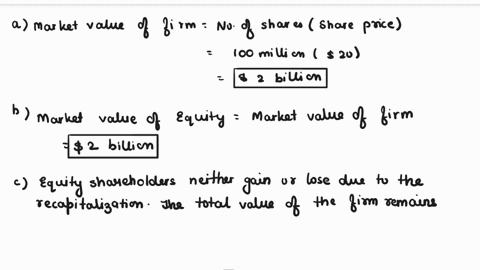 a) Market value of firm = No. of shares (Share price)
= 100 million ($20)
= $ 2 billion
b) Market value of Equity = Market value of firm
= $2 billion
c) Equity shareholders neither gain or lose due to the
recapitalization. The total value of the firm remains